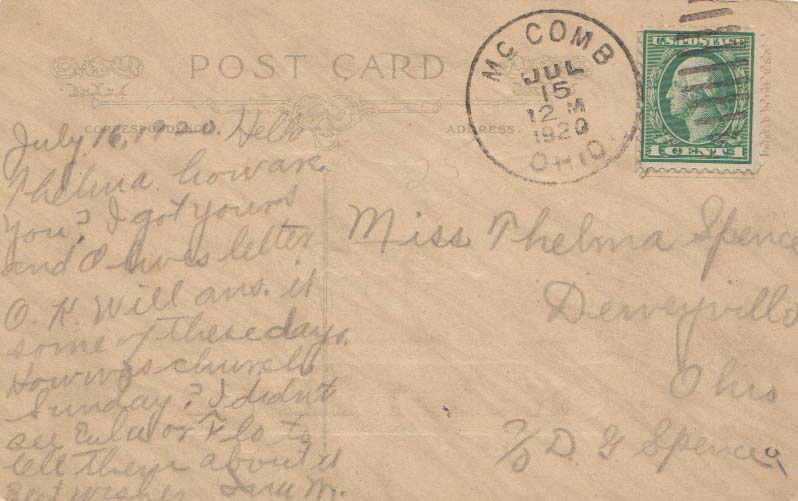 POST CARD
CORRESPONDENCE.
ADDRESS.
MC COMB
JUL
15
12 M
1920
OHIO
U.S. POSTAGE
1 CENT 1
July 16, 1920. Hello
Thelma. how are
you? I got yours
and Olives letter
O. K. Will ans. it
some of these days.
How was church
Sunday? I didn't
see Eula or Flo to
tell them about it
Best wishes
Miss Thelma Spence
Deweyville
Ohio
c/o D. G Spence